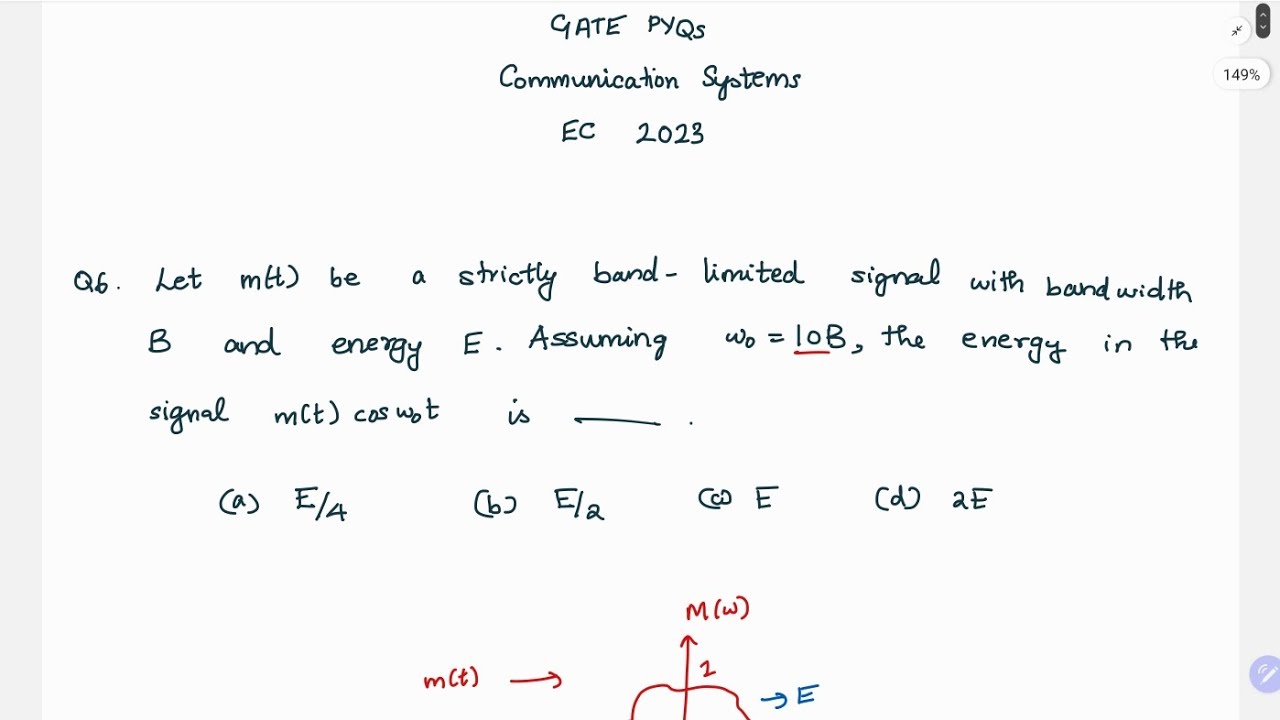 GATE PYQs
149%
Communication Systems
EC 2023
Q6. Let m(t) be a strictly band-limited signal with bandwidth
B and energy E. Assuming ω₀ = 10B, the energy in the
signal m(t) cos ω₀t is ____.
(a) E/4 (b) E/2 (c) E (d) 2E
M(ω)
m(t) → 1
→ E